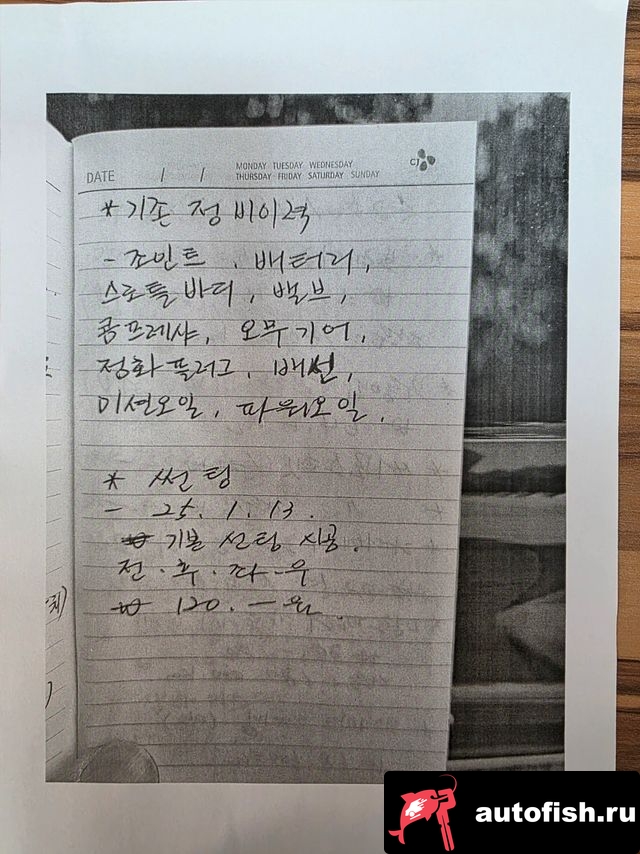 DATE / / MONDAY TUESDAY WEDNESDAY
THURSDAY FRIDAY SATURDAY SUNDAY
CJ
* 기존 정비이력
- 조인트, 배터리,
스로틀바디, 밸브,
콤프레샤, 오무기어,
점화플러그, 배선,
미션오일, 파워오일,
* 썬팅
- 25. 1. 13.
기본 선팅 시공.
전·후·좌·우
₩ 120.-원
autofish.ru